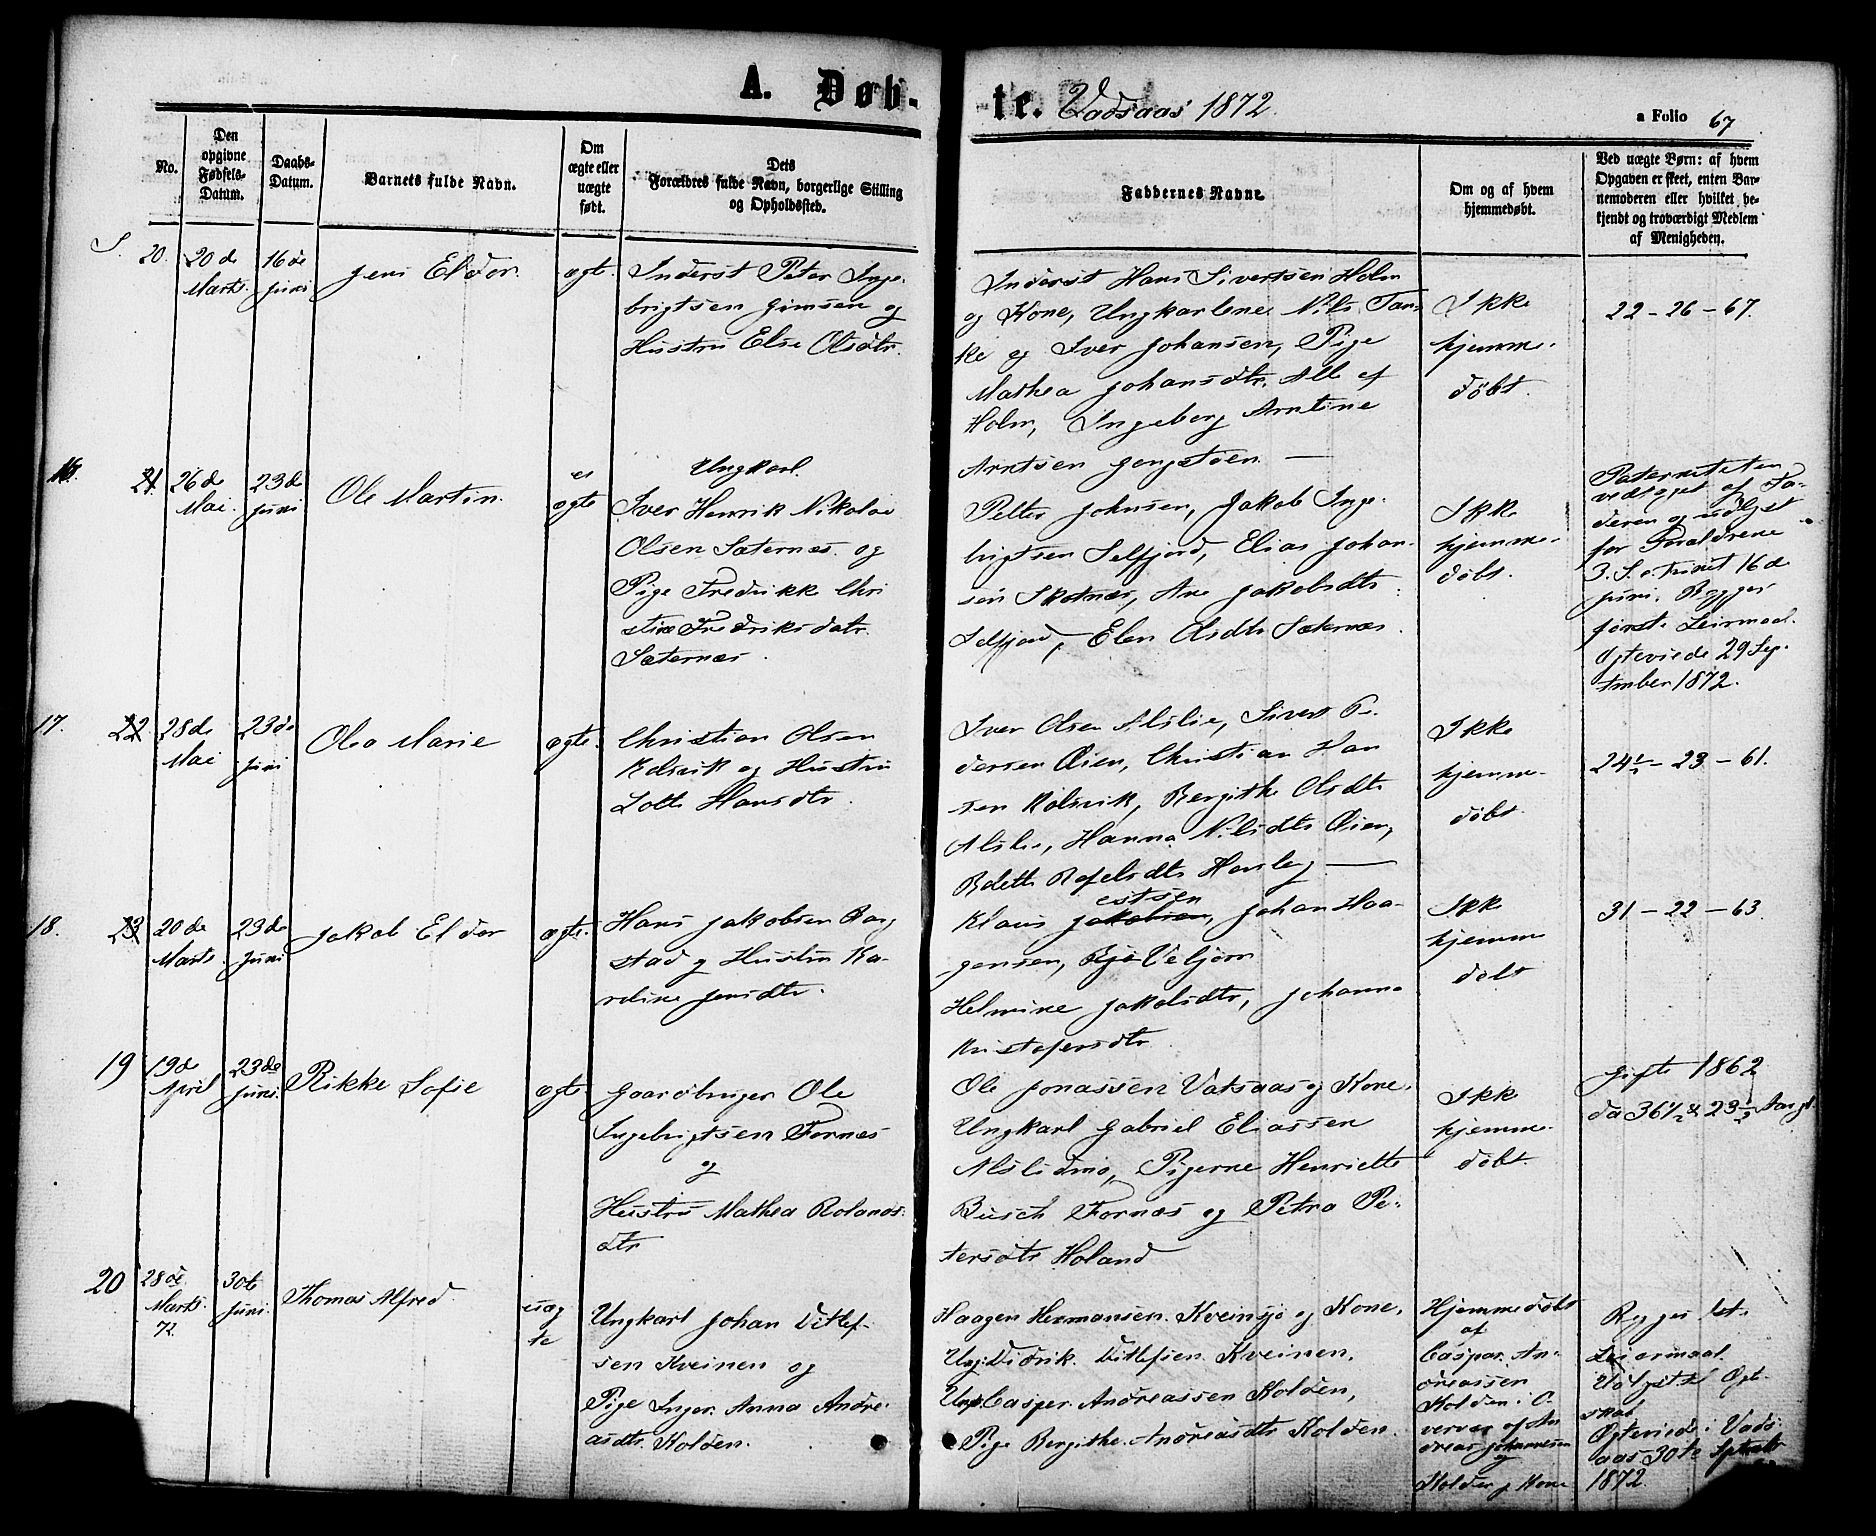 A. Døb-te. Vadsaas 1872.
a Folio 67
No.
Den
opgivne
Fødsels-
Datum.
Daabs-
Datum.
Barnets fulde Navn.
Om
ægte eller
uægte
født.
Dets
Forældres fulde Navn, borgerlige Stilling
og Opholdssted.
Faddernes Navne.
Om og af hvem
hjemmedøbt.
Ved uægte Børn: af hvem
Opgaven er skeet, enten Bar-
nemoderen eller hvilket be-
kjendt og troværdigt Medlem
af Menigheden.
S. 20.
20de
Marts.
16de
Juni
Jens Eldor.
ægt.
Inderst Peter Inge-
brigtsen Gimsen og
Hustru Else Olsdtr.
Inderst Hans Sivertsen Holm
og Kone, Ungkarlene Nils Tan-
ke og Iver Johansen, Pige
Mathea Johansdtr. Alle af
Holm, Ingeborg Arntine
Arntsen
Ikke
hjemme-
døbt.
22 - 26 - 67.
16. 21
26de
Mai.
23de
Juni
Ole Martin.
u
ægte
Ungkarl.
Iver Henrik Nikolai
Olsen Sæternæs. og
Pige Fredrikke Chri
stine Fredriksdatr.
Sæternæs.
Petter Johnsen, Jakob Inge-
brigtsen Selfjord, Elias Johan-
sen Skotnæs, Ane Jakobsdtr
Selfjord, Elen Olsdtr Sæternæs.
Ikke
hjemme-
døbt.
Paterniteten
vedtaget af Fa-
deren og udlyst
for Forældrene
3. S. e. Trinit 16de
Juni. Begges
første Leirmaal.
Ægteviede 29 Sep-
tember 1872.
17. 22
28de
Mai
23de
Juni
Olea Marie
ægte.
Christian Olsen
Kolsvik og Hustru
Lotte Hansdtr.
Iver Olsen Alslie, Sivert Pe-
dersen Øien, Christian Han
sen Kolsvik, Bergithe Olsdtr
Alslie, Hanna Nilsdtr Øien,
Bolette Rafelsdtr
Ikke
hjemme-
døbt.
24½ - 23 - 61.
18. 23
20de
Marts.
23de
Juni
Jakob Eldor
ægte.
Hans Jakobsen Bang
stad og Hustru Ka-
roline Jensdtr.
Klaus Jakobsen, Johan Haa-
gensen,
Helmine Jakobsdtr, Johanna
Kristofersdtr.
Ikke
hjemme
døbt
31 - 22 - 63.
19
19de
April
23de
Juni.
Rikke Sofie
ægte
Gaardbruger Ole
Ingebrigtsen Fornæs
og
Hustru Mathea Rolands-
dtr
Ole Jonassen Vatsaas og Kone,
Ungkarl Gabriel Eliassen
Alslidmo, Pigerne Henriette
Busch Fornæs og Petra Pe-
tersdtr Holand
Ikke
hjemme-
døbt.
Gifte 1862
da 36½ & 23½ Aar gl.
20
28de
Marts.
72.
30te
Juni.
Thomas Alfred.
uæg
te
Ungkarl Johan Ditlef-
sen Kveinen og
Pige Inger Anna Andre-
asdtr. Kolden.
Haagen Hermansen. Kveinsjø og Kone.
Ung. Didrik. Ditlefsen. Kveinen.
Ung. Casper Andreassen Kolden,
Pige Bergithe. Andreasdtr Kolden.
Hjemmedøbt
af
Caspar. An-
dreassen
Kolden. i O-
vervær af An
dreas Johannesen
og
Kolden & Kone
Begges 1st.
Leiermaal.
Udlyst til Ægt-
skab
Ægteviede i Vads-
aas 30te Septemb
1872.